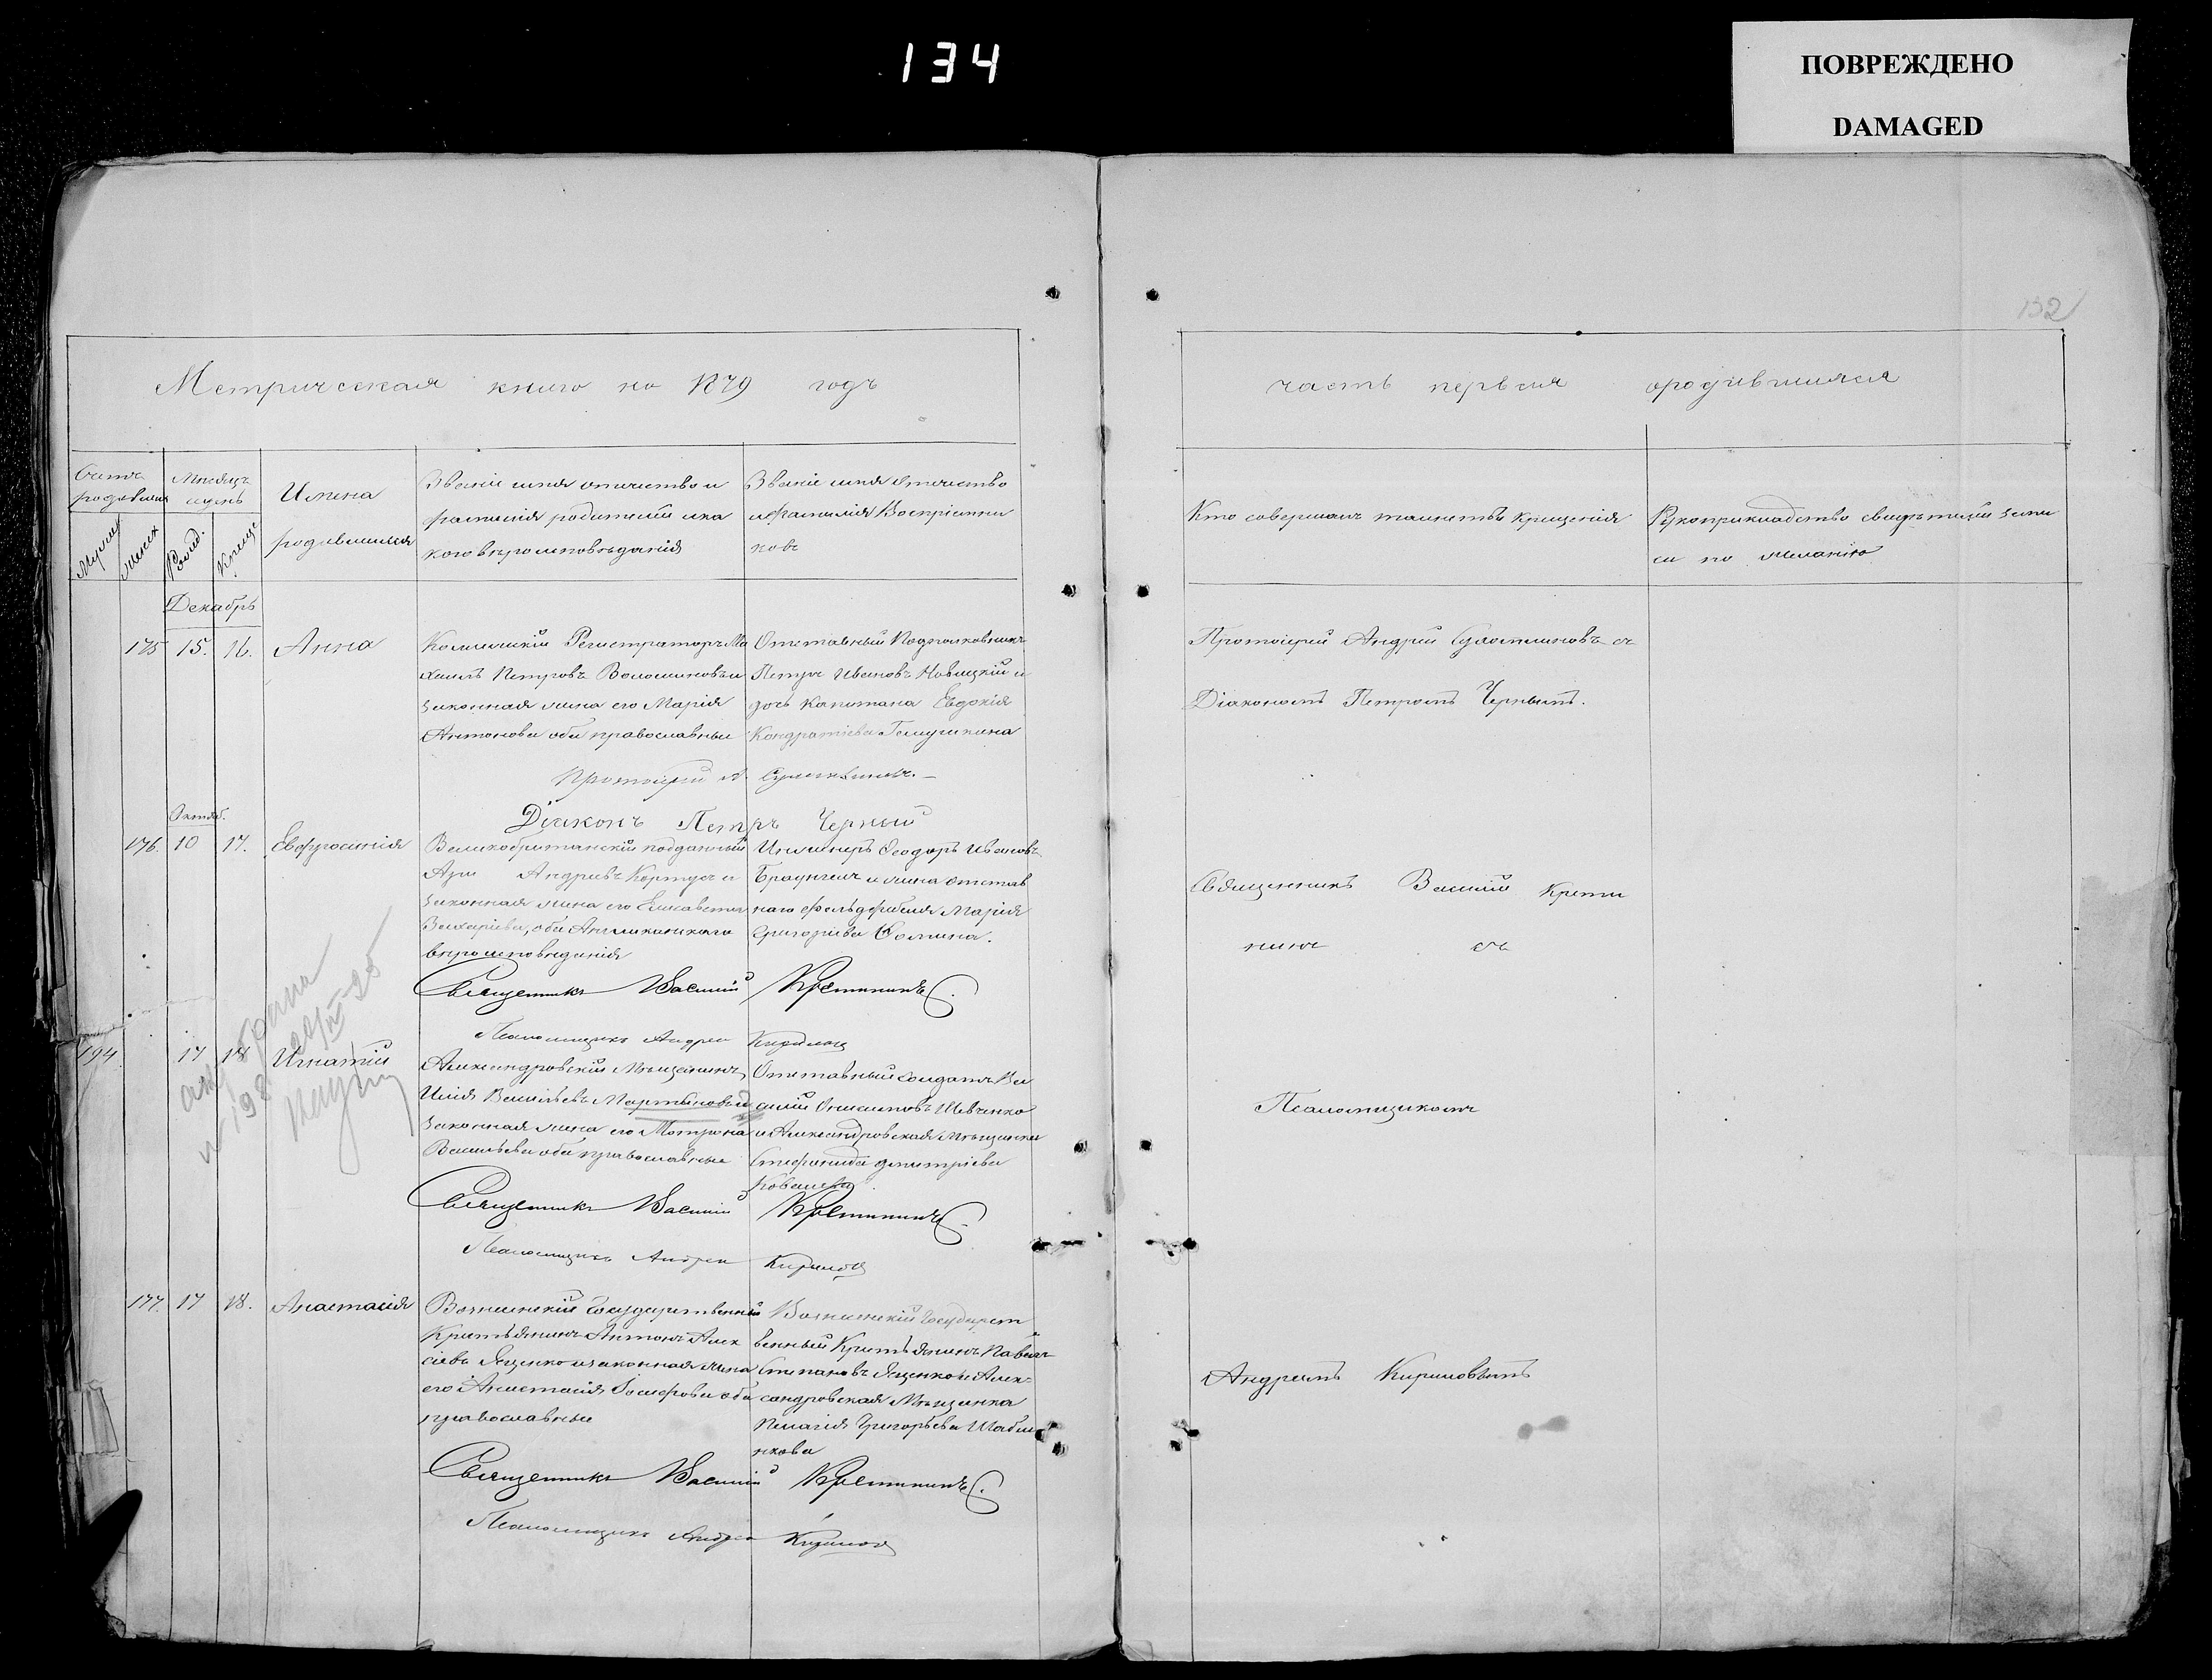 134
ПОВРЕЖДЕНО
DAMAGED
132
Метрическая книга на 1879 годъ
часть первая о родившихся
Счетъ родившихся
Мѣсяцъ и день
Имена
родившихся
Званіе имя отчество и
фамилія родителей и ка
кого вѣроисповѣданія
Званіе имя отчество
и фамилія Воспріемни
ковъ
Кто совершалъ таинство крещенія
Рукоприкладство свидѣтелей запи
си по желанію
Мужск
женск
Рожд.
Крещ.
Декабрь
175 15. 16. Анна
Коллежскій Регистраторъ Ми
хаилъ Петровъ Волошиновъ и
законная жена его Марія
Антонова оба православные
Отставный Подполковникъ
Петръ Ивановъ Новицкій и
дочь Капитана Евдокія
Кондратіева
Протоіерей Андрей съ
Діакономъ Петромъ Чернымъ.
Протоіерей А.
Діаконъ Петръ Черный
Октяб.
176. 10 17. Евфросинія
Великобританскій подданный
Андреевъ и
законная жена его Елисавета
Захаріева, оба Англиканскаго
вѣроисповѣданія
Инженеръ Ѳеодоръ Ивановъ
и жена отстав
наго фельдфебеля Марія
Григоріева Сомина.
Священникъ Василій Крести
нинъ съ
Священникъ Василій Крестининъ.
Псаломщикъ Андрей Кириловъ
194 17 18 Игнатій
Александровскій Мѣщанинъ
Илія Васильевъ Мартыновъ и
законная жена его Матрона
Васильева оба православные
Отставный солдатъ Ва
силій Онисимовъ Шевченко
и Александровская Мѣщанка
Стефанида Дмитріева
Ковалева.
Псаломщикомъ
Священникъ Василій Крестининъ.
Псаломщикъ Андрей Кириловъ
177. 17 18. Анастасія
Вознесенскій Государственный
Крестьянинъ Антонъ Алек
сіевъ Яценко и законная жена
его Анастасія Іосифова оба
православные
Вознесенскій Государст
венный Крестьянинъ Павелъ
Степановъ Яценко и Алек-
сандровская Мѣщанка
Пелагія Григорьева Шабли
нкова
Андреемъ Кириловымъ
Священникъ Василій Крестининъ.
Псаломщикъ Андрей Кириловъ